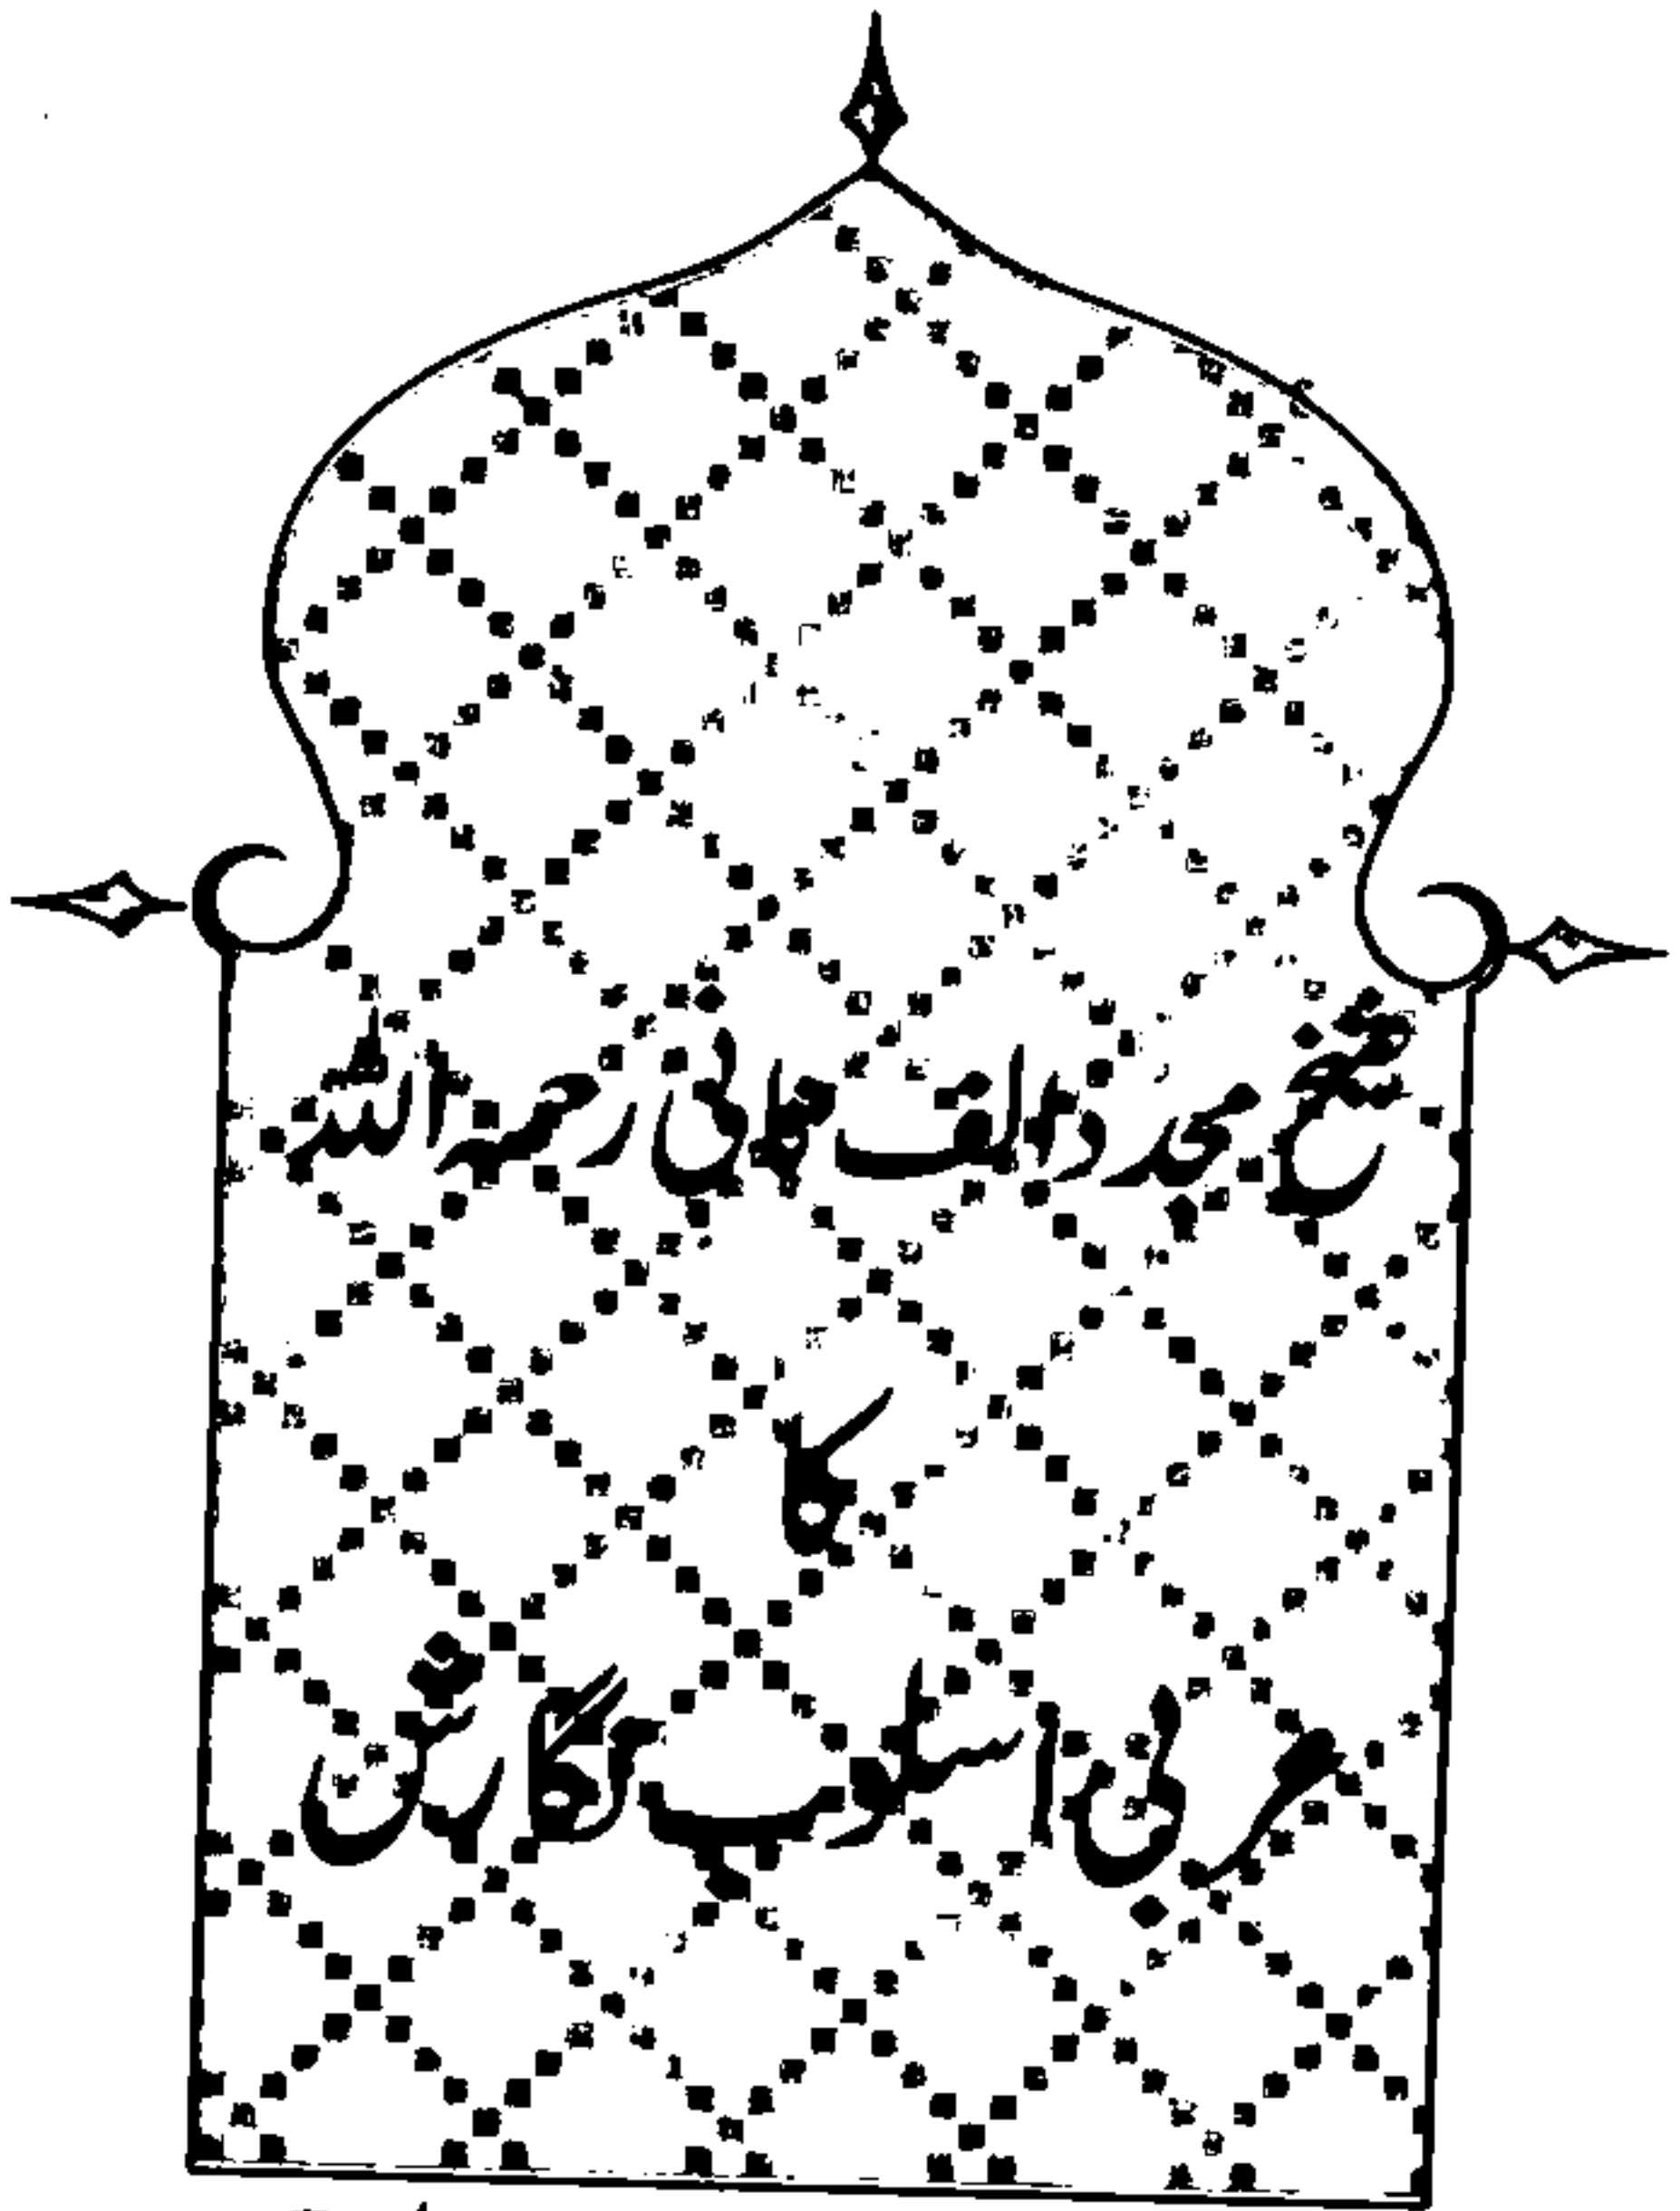 شیخ مجدد الف ثانی رحمۃ اللہ
کا
عرفانی اسلوب نگارش